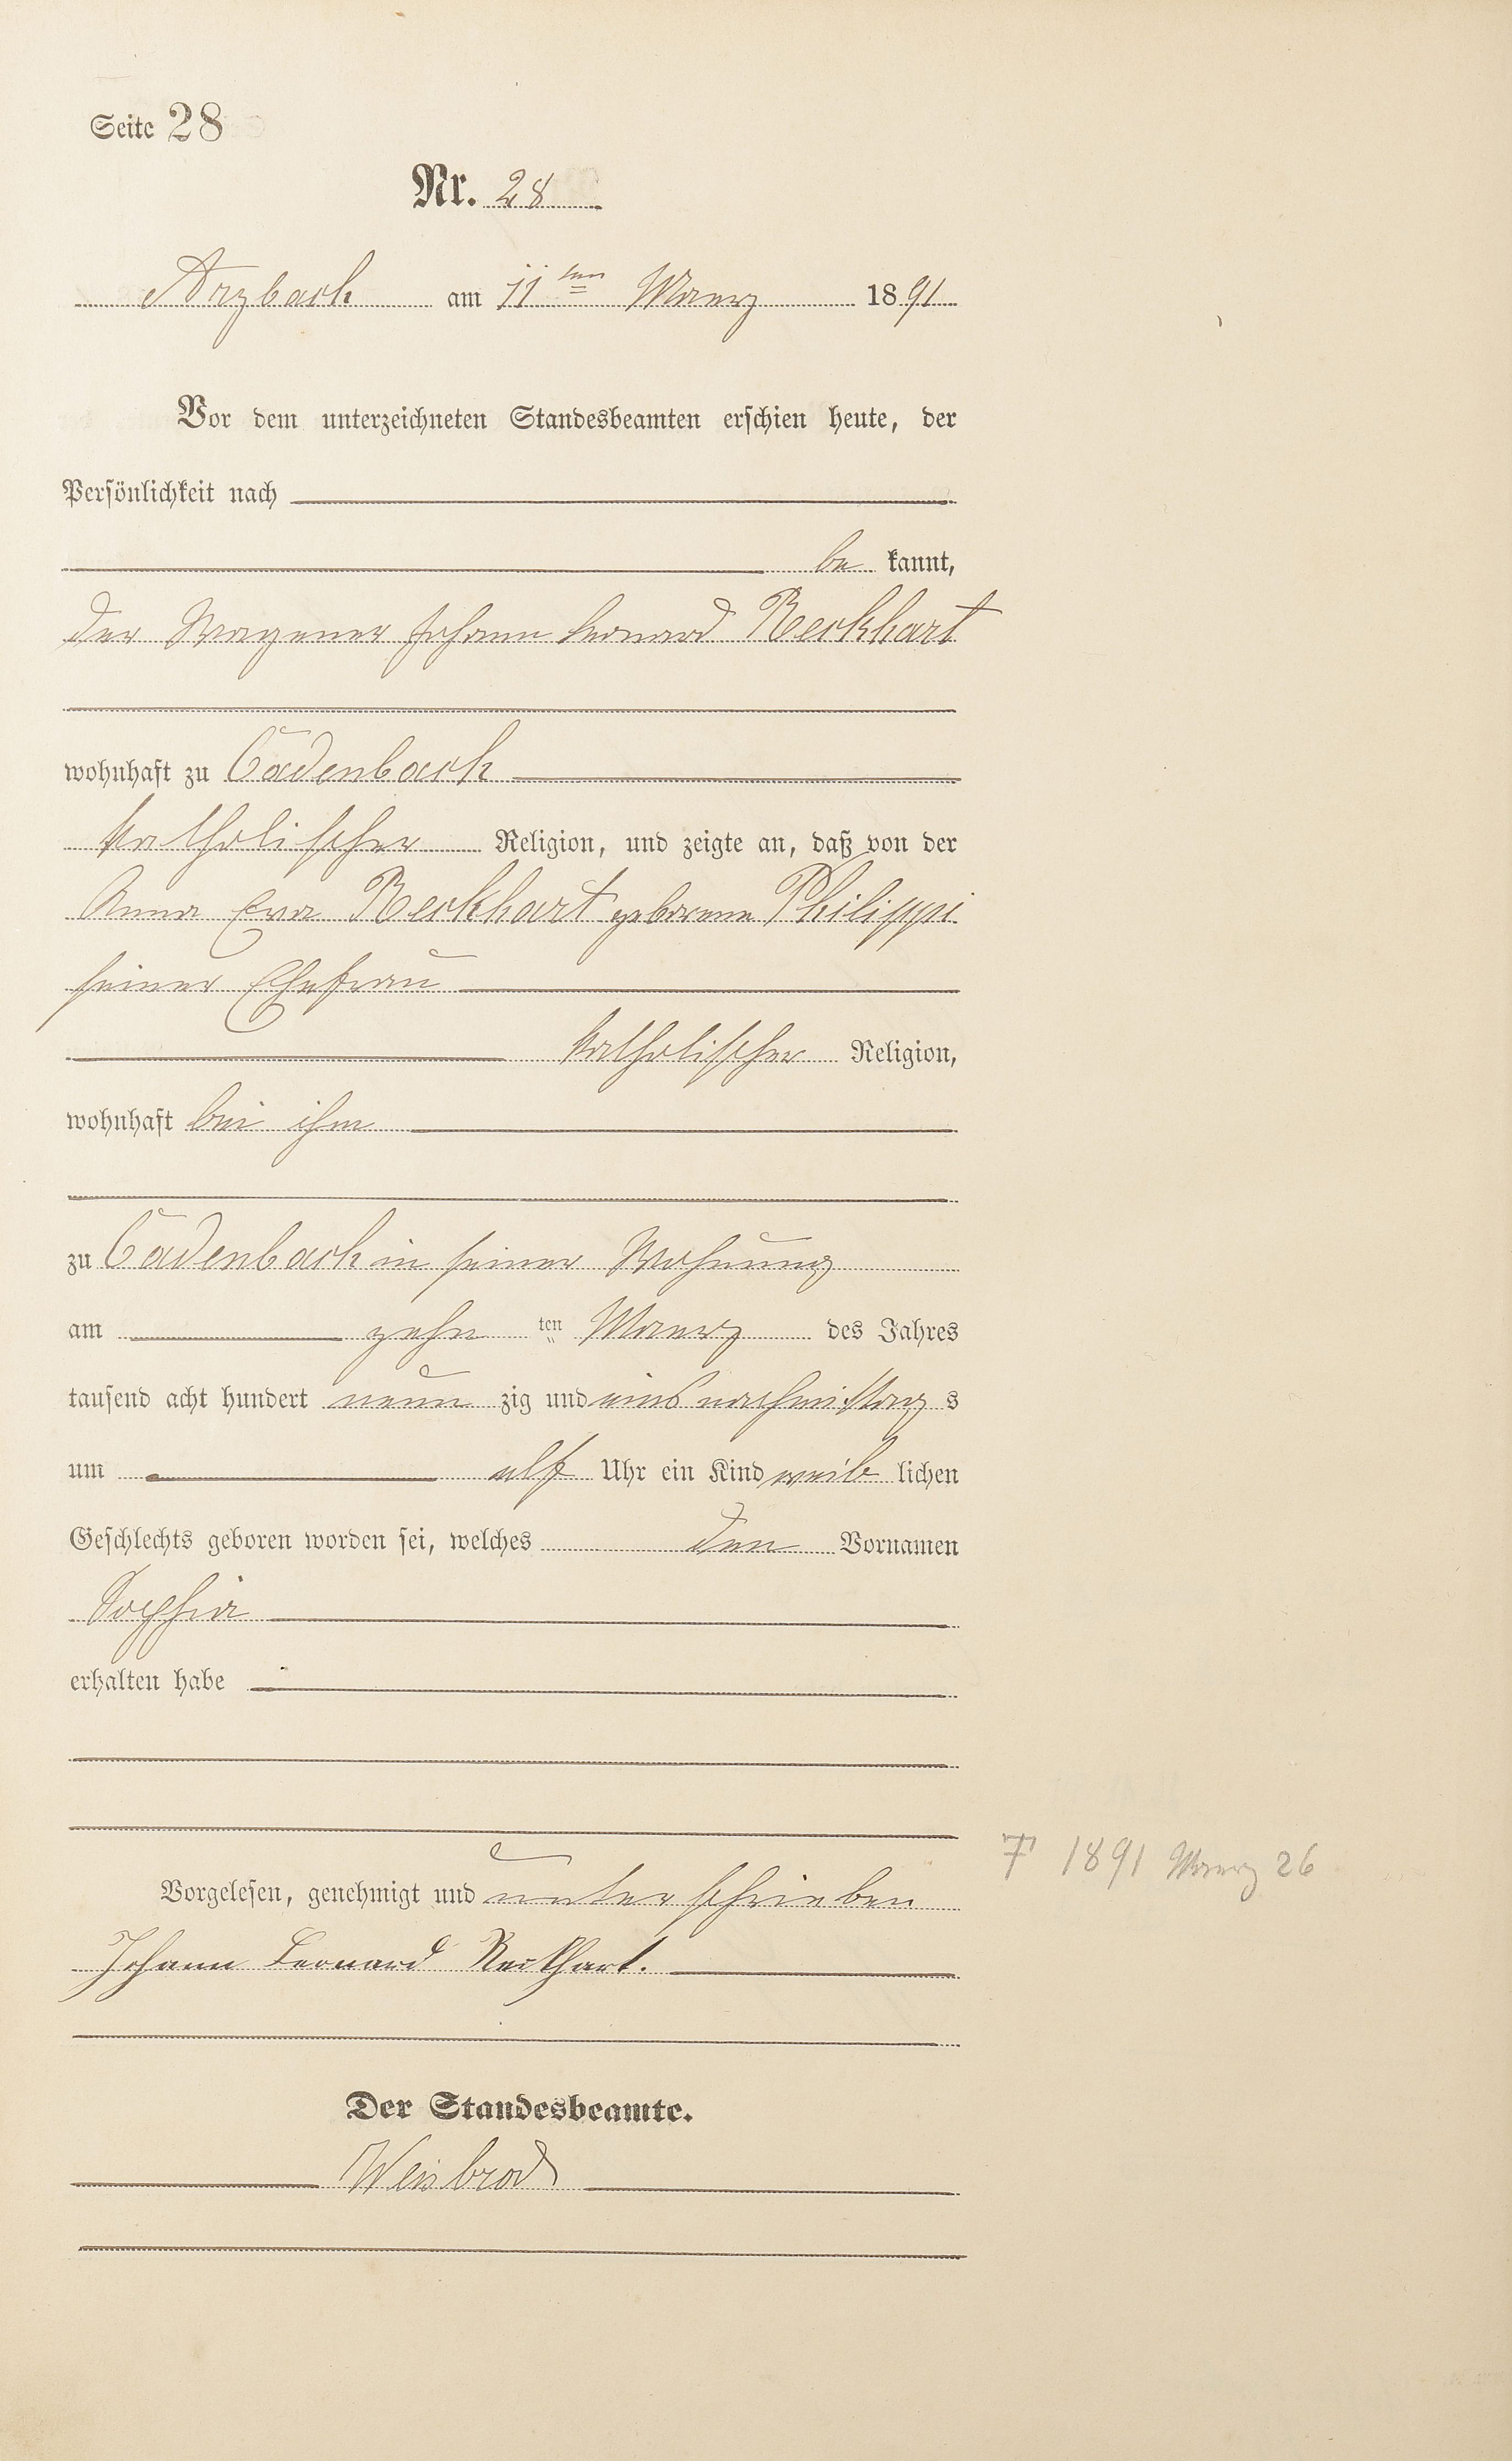 Seite 28
Nr. 28
Arzbach am 11ten Maerz 1891
Vor dem unterzeichneten Standesbeamten erschien heute, der
Persönlichkeit nach
be kannt,
der Wagener Johann Leonard Reckhart
wohnhaft zu Cadenbach
katholischer Religion, und zeigte an, daß von der
Anna Eva Reckhart geborene Philippi
seiner Ehefrau
katholischer Religion,
wohnhaft bei ihm
zu Cadenbach in seiner Wohnung
am zehn ten Maerz des Jahres
tausend acht hundert neun zig und eins nachmittag s
um elf Uhr ein Kind weib lichen
Geschlechts geboren worden sei, welches den Vornamen
Sophia
erhalten habe
† 1891 Maerz 26
Vorgelesen, genehmigt und unterschrieben
Johann Leonard Reckhart.
Der Standesbeamte.
Weisbrod